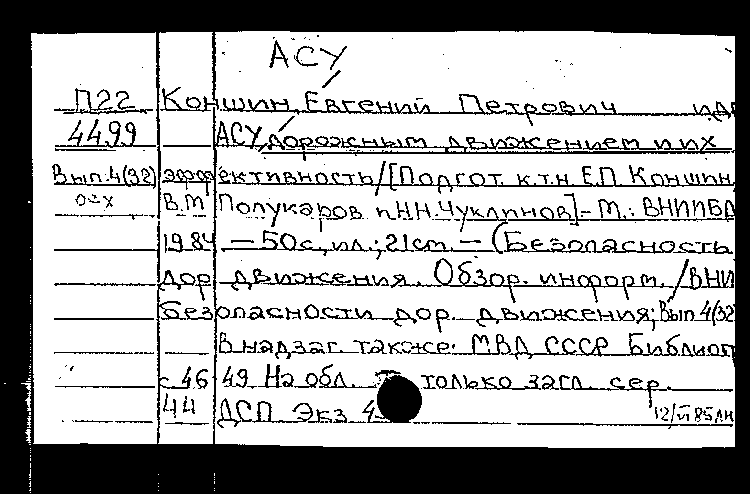 АСУ
П22 Коншин, Евгений Петрович
4499 АСУ дорожным движением и их
Вып. 4(32) эффективность/[Подгот. к.т.н. Е.П. Коншин,
В.М. Полукаров и Н.Н. Чуклинов]- М.: ВНИИБД
1984 — 50с., ил.; 21см. — (Безопасность
дор. движения. Обзор. информ. /ВНИ
безопасности дор. движения; Вып 4(32
В надзаг. также: МВД СССР Библиог
с 46-49 На обл. только загл. сер.
44 ДСП Экз 4 12/VI 85